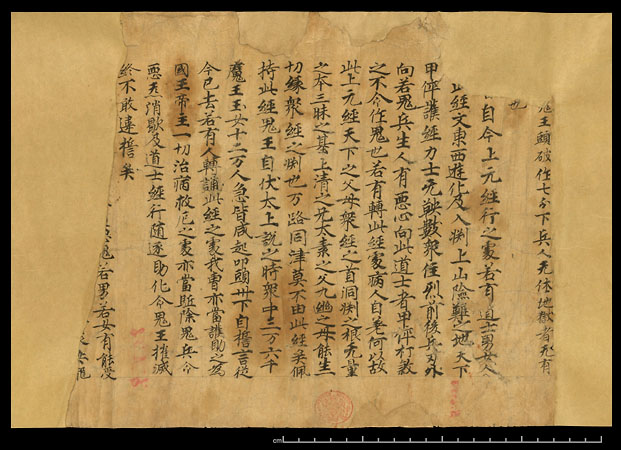 鬼王頭破作七分下兵人无休地獄者无有
也
自今上元經行之處若有道士男女人
此經文東西遊化及入渕上山險難之地天下
甲倅護經力士无鞅數衆住烈前後兵刃外
向若鬼兵生人有惡心向此道士者甲倅打煞
之不令作鬼也若有轉此經處病人自差何以故
此上元經天下之父母衆經之首洞渕之根无量
之本三昧之基上清之先太素之父九幽之母能生一
切緣衆經之渕也万路同津莫不由此經矣佩
持此經鬼王自伏太上說之時衆中三万六千
魔王玉女十二万人急皆咸起叩頭卅下自擔言從
今已去若有人轉誦此經之處我曹亦當護助之為
國王帝主一切治病救厄之處亦當斷除鬼兵令
惡炁消歇及道士經行随逐助化令鬼王摧滅
終不敢違擔矣
惡鬼若男若女有能受
鬼
cm